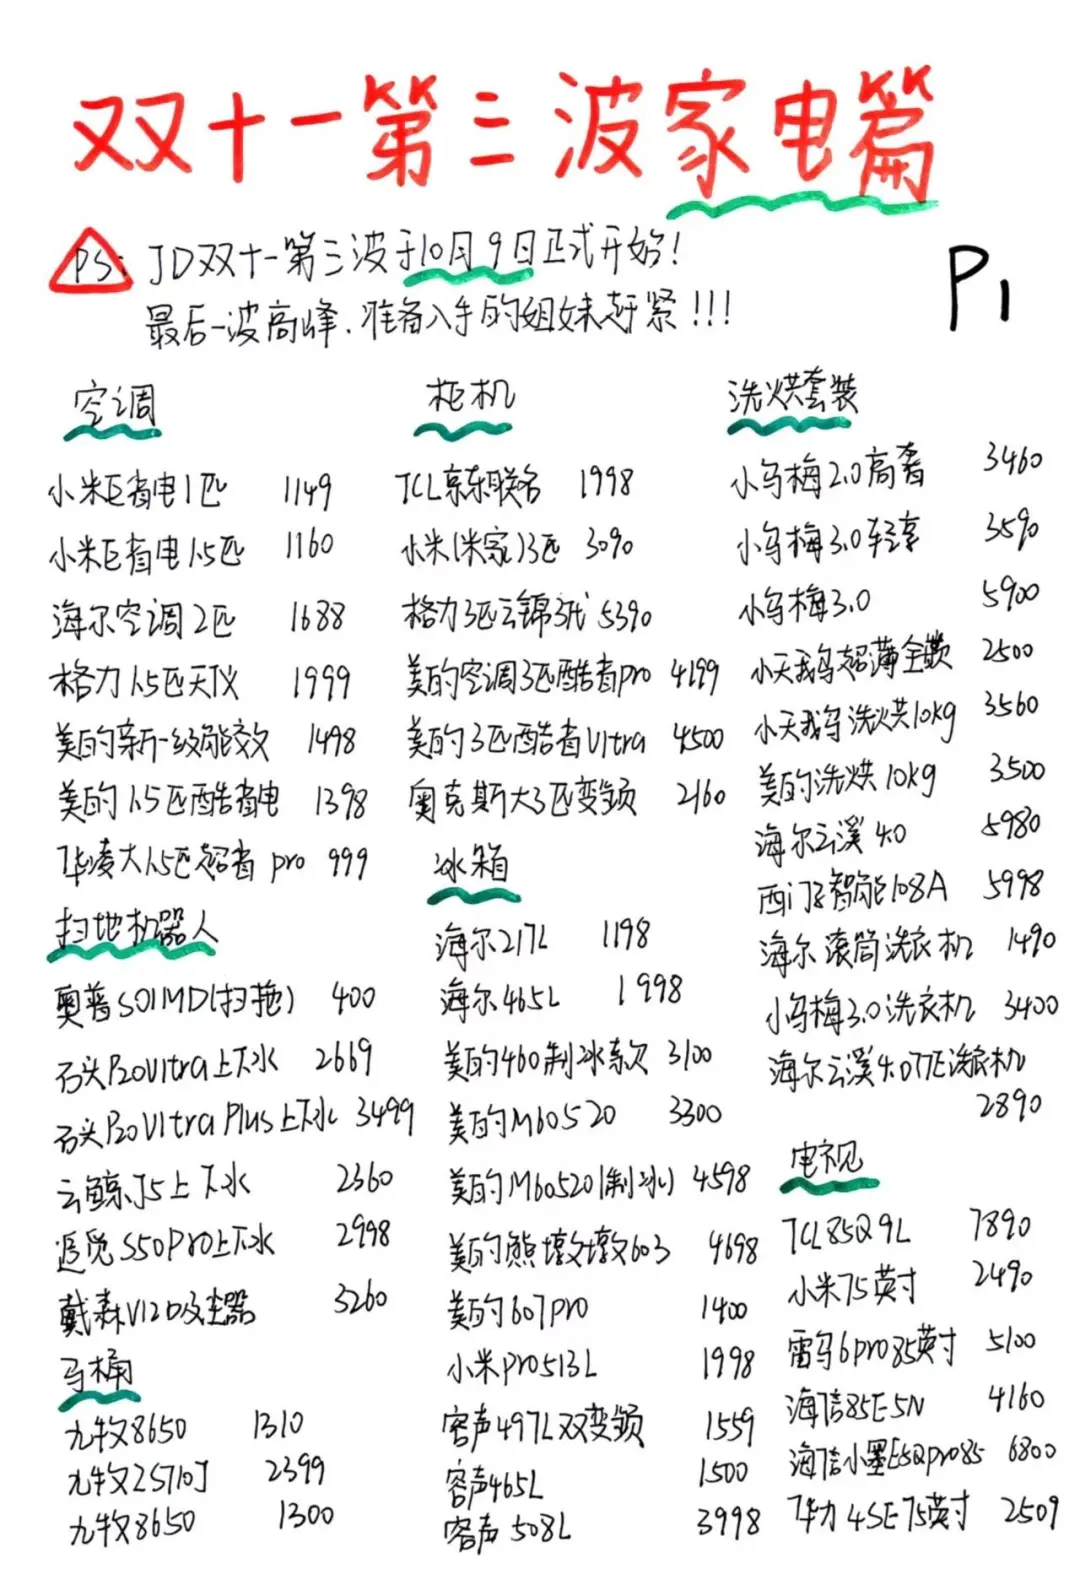 双十一第三波家电篇
PS: JD双十一第三波于10月9日正式开始!
最后一波高峰.准备入手的姐妹赶紧!!!
P1
空调
小米巨省电1匹 1149
小米巨省电1.5匹 1160
海尔空调2匹 1688
格力1.5匹天仪 1999
美的新一级能效 1498
美的1.5匹酷省电 1398
华凌大1.5匹超省pro 999
扫地机器人
奥普S01MD(扫拖) 400
石头P20Vltra上下水 2669
石头P20VltraPlus上下水 3499
云鲸J5上下水 2360
追觅S50Pro上下水 2998
戴森V12吸尘器 3260
马桶
九牧8650 1310
九牧ZS710J 2399
九牧8650 1300
柜机
TCL京东联名 1998
小米(米家)3匹 3090
格力3匹云锦3代 5390
美的空调3匹酷省pro 4199
美的3匹酷省Vltra 4500
奥克斯大3匹变频 2160
冰箱
海尔217L 1198
海尔465L 1998
美的460制冰系列 3100
美的M60520 3300
美的M60520(制冰) 4598
美的熊墩墩603 4698
美的607pro 1400
小米pro513L 1998
容声497L双变频 1559
容声465L 1500
容声508L 3998
洗烘套装
小乌梅2.0高奢 3460
小乌梅3.0轻享 3590
小乌梅3.0 5900
小天鹅超薄全嵌 2500
小天鹅洗烘10kg 3560
美的洗烘10kg 3500
海尔云溪4.0 5980
西门子智能108A 5998
海尔滚筒洗衣机 1490
小乌梅3.0洗衣机 3400
海尔云溪4.077E洗衣机
2890
电视
TCL85Q9L 7890
小米75英寸 2490
雷鸟6pro85英寸 5100
海信85E5N 4160
海信小墨E5Qpro85 6800
华为4SE75英寸 2509